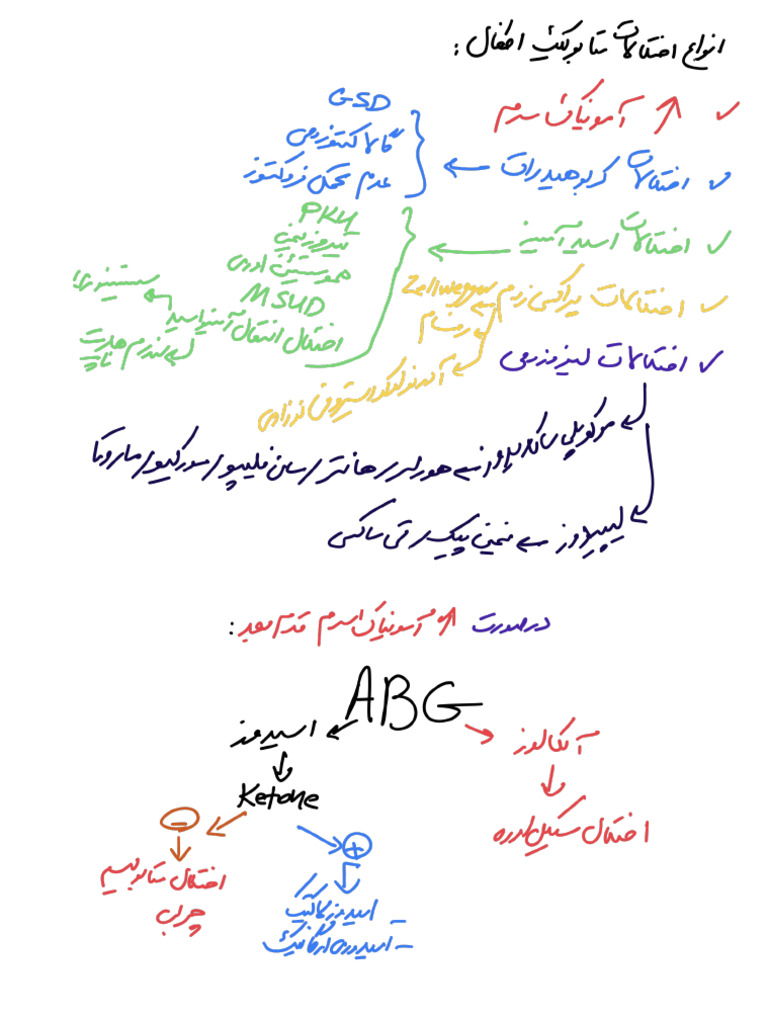 انواع اختلالات متابولیک اطفال:
✓ ↑ آمونیاک سرم
✓ اختلالات کربوهیدرات ←
GSD
گالاکتوزومی
عدم تحمل فروکتوز
✓ اختلالات اسید آمینه ←
PKU
تیروزینمی
هموسیستئین اوری
MSUD
اختلال انتقال آمینواسید
سیستینوری
سندرم هارت ناپ
✓ اختلالات پراکسی زوم
Zellweger
رفسام
آدرنولوکودیستروفی نوزادی
✓ اختلالات لیزوزومی
موکوپلی ساکاریدوز ← هورلر / هانتر / سان فیلیپو / مورکیو / ماروتو
لیپیدوز ← نیمن پیک / تی ساکس
در صورت ↑ آمونیاک سرم قدم بعد:
ABG
آلکالوز
اختلال سیکل اوره
اسیدوز
Ketone
−
اختلال متابولیسم
چرب
+
– اسیدوز لاکتیک
– اسیدوری ارگانیک